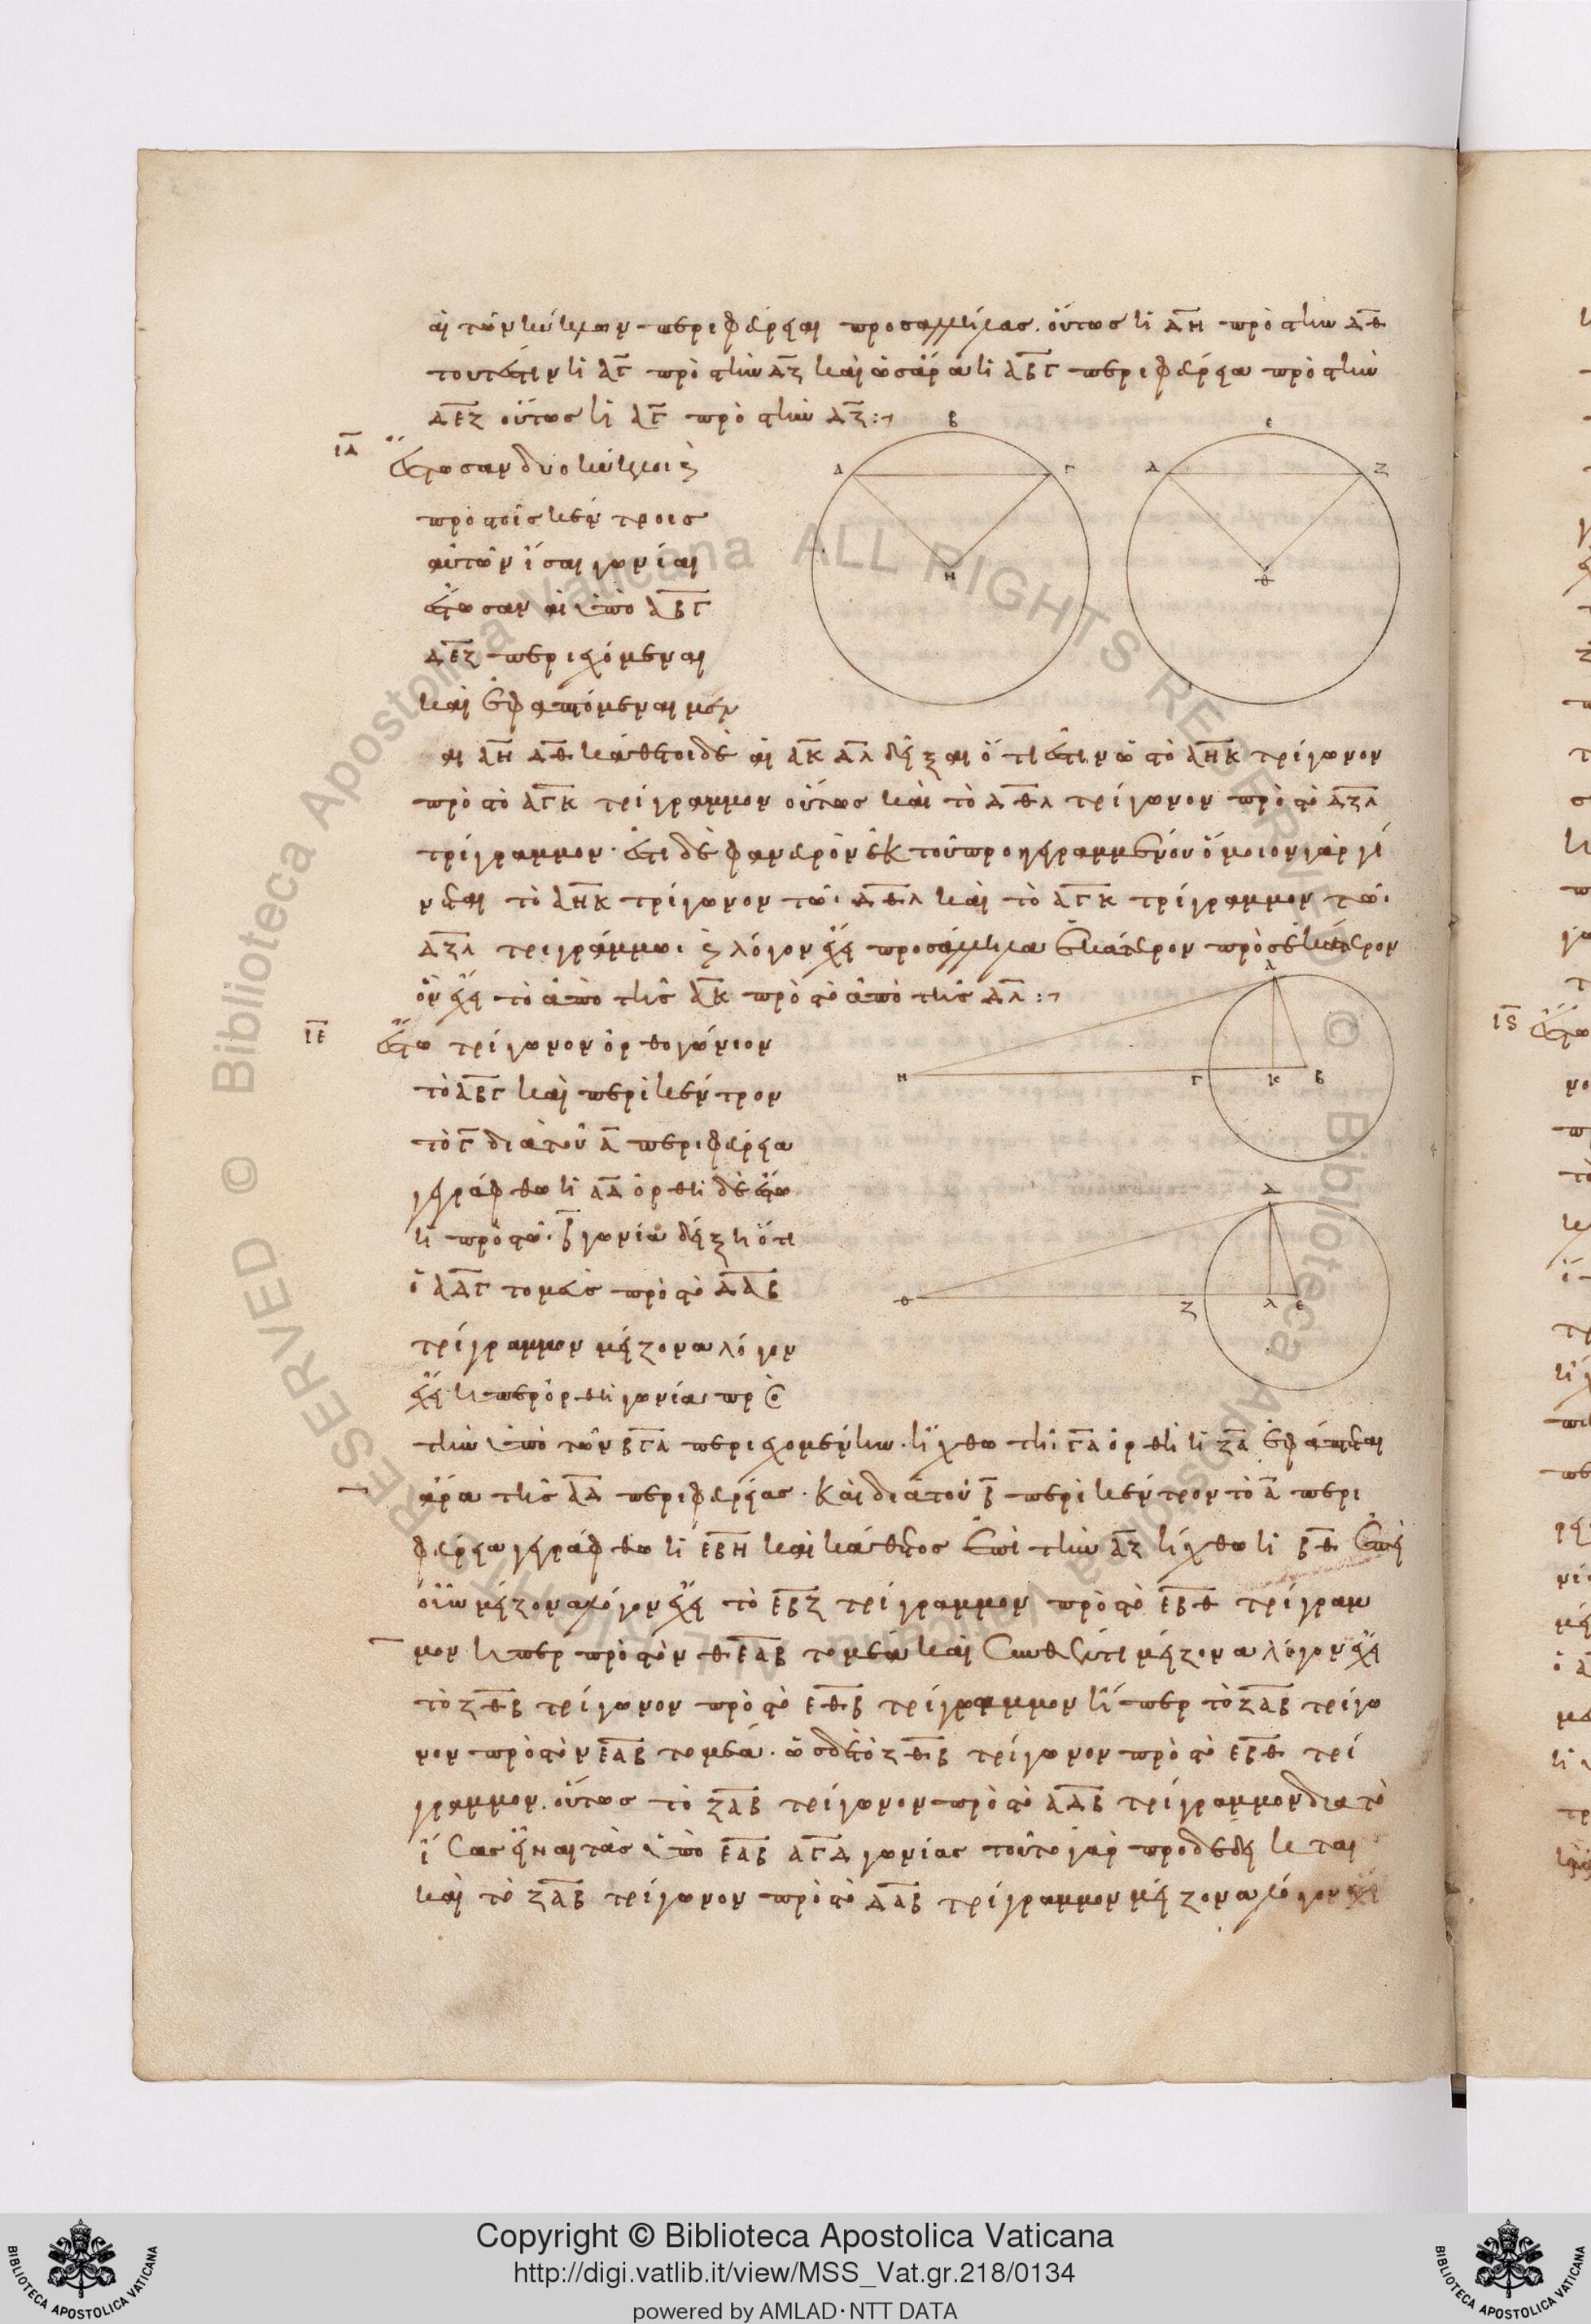 αἱ τῶν κύκλων περιφέρειαι πρὸς ἀλλήλας. οὕτως ἡ ΔΗ πρὸς τὴν ΔΘ
τουτέστιν ἡ ΑΓ πρὸς τὴν ΔΖ καὶ ὡς ἄρα ἡ ΑΒΓ περιφέρεια πρὸς τὴν
ΔΕΖ οὕτως ἡ ΑΓ πρὸς τὴν ΔΖ:
ΙΔ
ἔστωσαν δύο κύκλοι καὶ
πρὸς τοῖς κέντροις
αὐτῶν ἴσαι γωνίαι
ἔστωσαν αἱ ὑπὸ ΑΒΓ
ΔΕΖ περιεχόμεναι
καὶ ἐφαπτόμεναι μὲν
αἱ ΑΗ ΔΘ κάθετοι δὲ αἱ ΑΚ ΔΛ δεῖξαι ὅτι ἐστὶν ὡς τὸ ΑΗΚ τρίγωνον
πρὸς τὸ ΑΓΚ τρίγραμμον οὕτως καὶ τὸ ΔΘΛ τρίγωνον πρὸς τὸ ΔΖΛ
τρίγραμμον. ἔστι δὲ φανερὸν ἐκ τοῦ προγεγραμμένου ὅμοιον γὰρ γί
νεται τὸ ΑΗΚ τρίγωνον τῶι ΔΘΛ καὶ τὸ ΑΓΚ τρίγραμμον τῶι
ΔΖΛ τριγράμμωι καὶ λόγον ἔχει πρὸς ἄλληλα ἑκάτερον πρὸς ἑκάτερον
ὃν ἔχει τὸ ἀπὸ τῆς ΑΚ πρὸς τὸ ἀπὸ τῆς ΔΛ:
ΙΕ
ἔστω τρίγωνον ὀρθογώνιον
τὸ ΑΒΓ καὶ περὶ κέντρον
τὸ Γ διὰ τοῦ Α περιφέρεια
γεγράφθω ἡ ΑΔ ὀρθὴ δὲ ἔστω
ἡ πρὸς τῶι Β γωνία δείξη ὅτι
ὁ ΑΔΓ τομεὺς πρὸς τὸ ΔΑΒ
τρίγραμμον μείζονα λόγον
ἔχει ἤπερ ὀρθὴ γωνία πρὸς
τὴν ὑπὸ τῶν ΒΓΑ περιεχομένην. ἤχθω τῆι ΓΑ ὀρθὴ ἡ ΖΑ ἐφάπτεται
ἄρα τῆς ΑΔ περιφερείας. καὶ διὰ τοῦ Β περὶ κέντρον τὸ Α περι
φέρεια γεγράφθω ἡ ΕΒΗ καὶ κάθετος ἐπὶ τὴν ΑΖ ἤχθω ἡ ΒΘ ἐπεὶ
οὖν μείζονα λόγον ἔχει τὸ ΕΒΖ τρίγραμμον πρὸς τὸ ΕΒΘ τρίγραμ
μον ἤπερ πρὸς τὸν ΘΕΑΒ τομέα καὶ συνθέντι μείζονα λόγον ἔχει
τὸ ΖΘΒ τρίγωνον πρὸς τὸ ΕΘΒ τρίγραμμον ἤπερ τὸ ΖΑΒ τρίγω
νον πρὸς τὸν ΕΑΒ τομέα. ὡς δὲ τὸ ΖΘΒ τρίγωνον πρὸς τὸ ΕΒΘ τρί
γραμμον. οὕτως τὸ ΖΑΒ τρίγωνον πρὸς τὸ ΑΔΒ τρίγραμμον διὰ τὸ
ἴσας εἶναι τὰς ὑπὸ ΕΑΒ ΑΓΔ γωνίας τοῦτο γὰρ προδέδεικται
καὶ τὸ ΖΑΒ τρίγωνον πρὸς τὸ ΔΑΒ τρίγραμμον μείζονα λόγον ἔχει
Α Β Γ Η
Δ Ε Ζ Θ
Α Η Γ Κ Β
Δ Θ Ζ Λ Ε
ΙϚ
Copyright © Biblioteca Apostolica Vaticana
http://digi.vatlib.it/view/MSS_Vat.gr.218/0134
powered by AMLAD·NTT DATA
BIBLIOTECA APOSTOLICA VATICANA
BIBLIOTECA APOSTOLICA VATICANA
© Biblioteca Apostolica Vaticana ALL RIGHTS RESERVED © Biblioteca Apostolica Vaticana ALL RIGHTS RESERVED